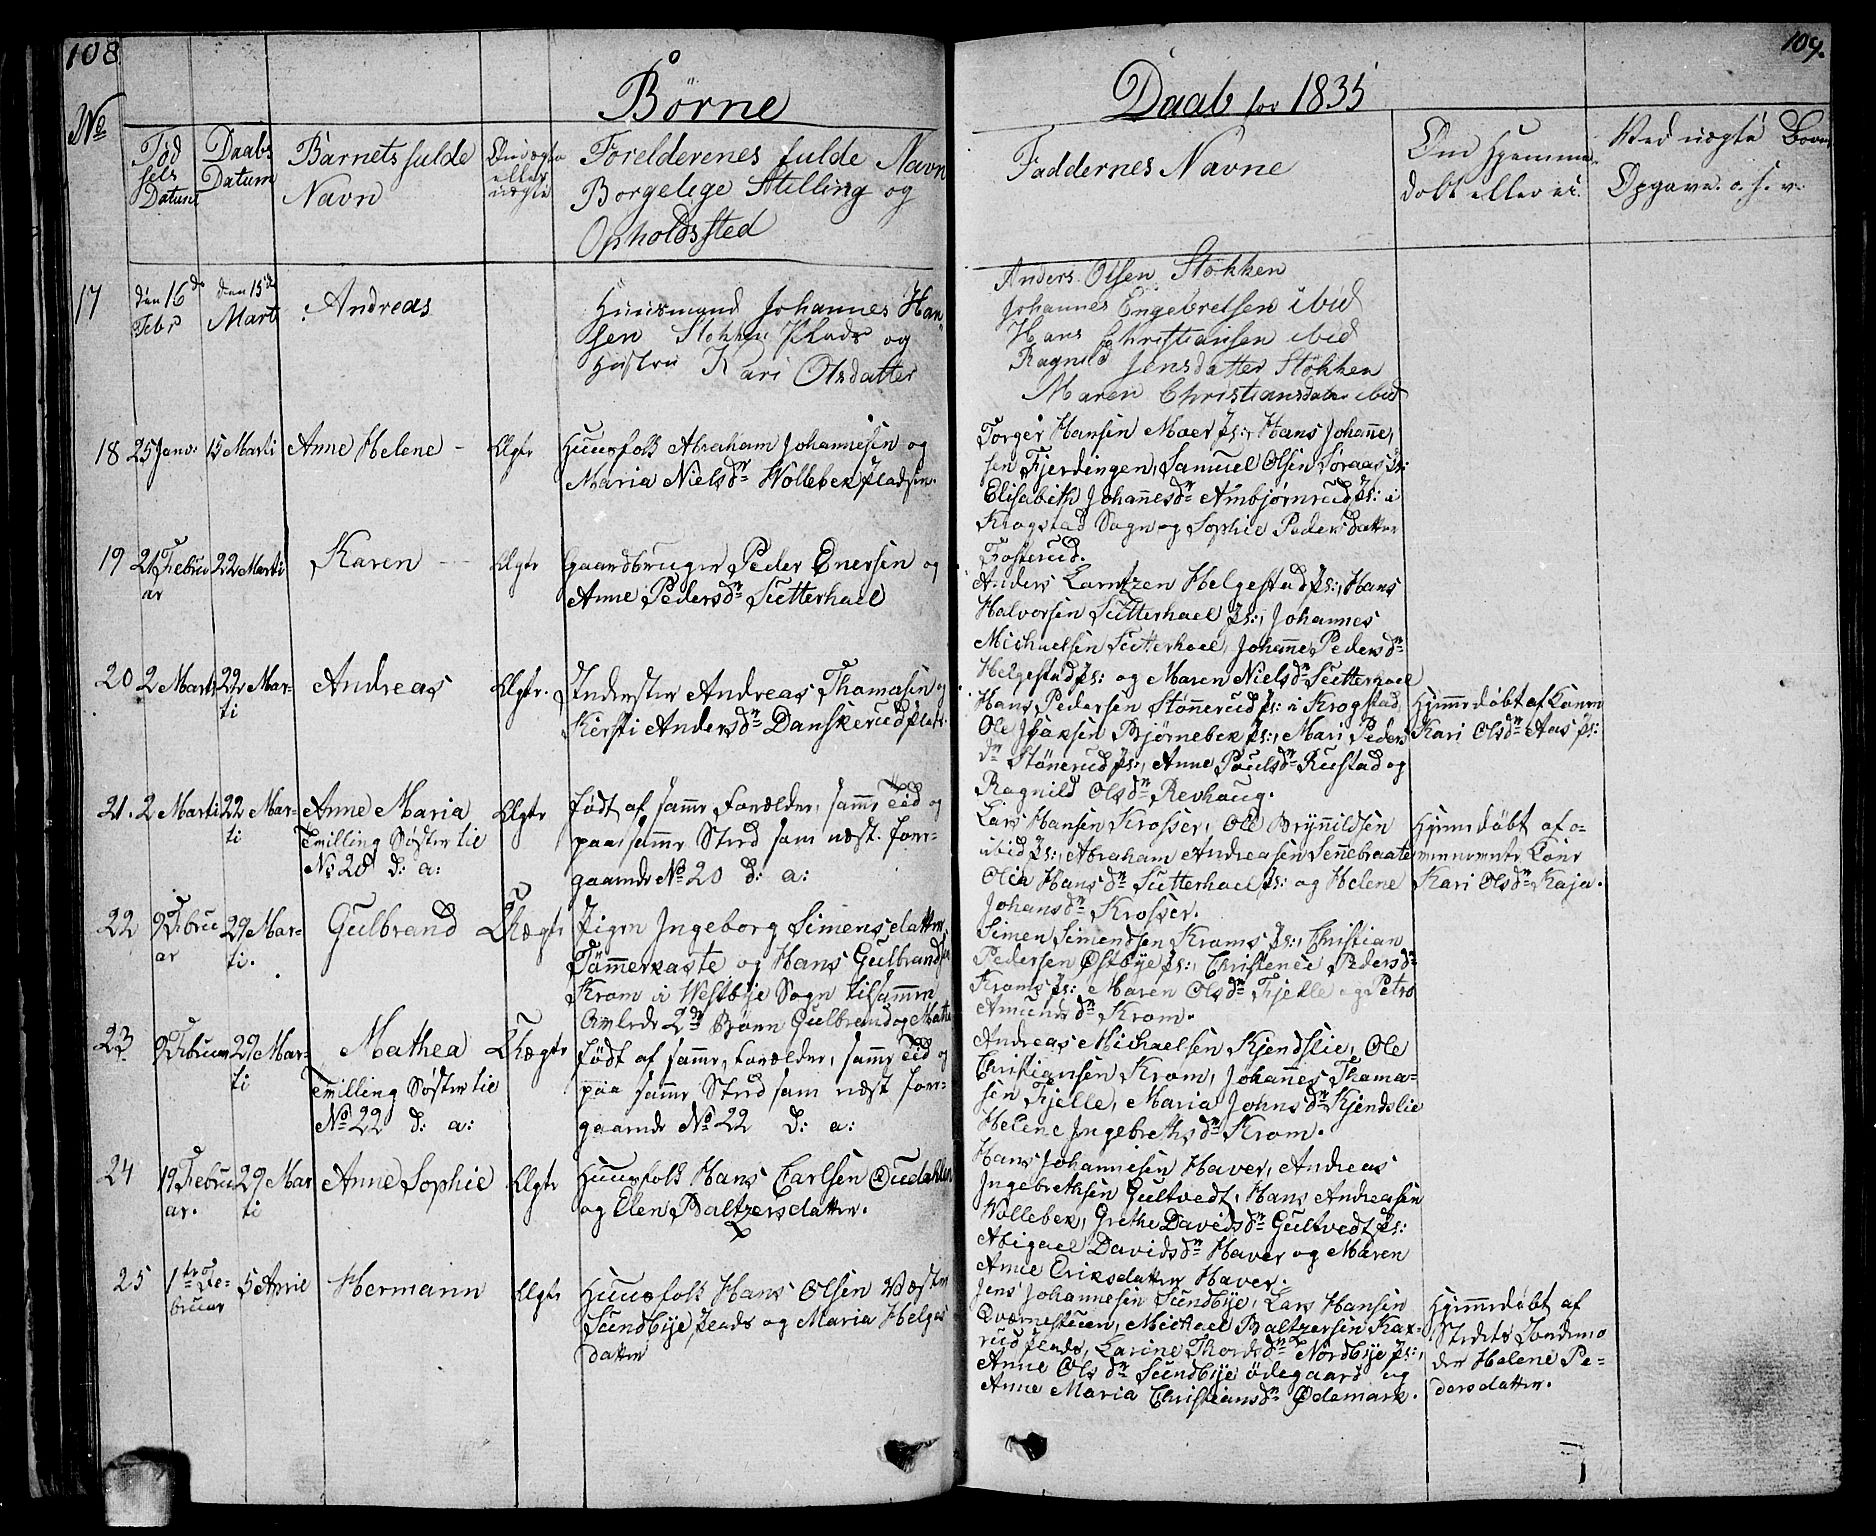 108
109.
Börne
Daab for 1835
No
Föd
sels
Datum
Daabs
Datum
Barnets fulde
Navn
Uægte
eller
ægte
Foreldrenes fulde Navn
Borgelige Stilling og
Opholdssted
Faddernes Navne
Om Hjemme-
döbt eller ei.
Ved uægte Börn
Opgave o. s. v.
17
den 16de
Febr
den 15de
Mart
Andreas
Huusmand Johannes Han-
sen Stökken Plads og
Hustru Kari Olsdatter
Anders Olsen Stökken
Johannes Engebretsen ibid
Hans Christiansen ibid
Ragnild Jensdatter Stökken
Maren Christiansdatter ibid
18
25 Janv:
15 Marti
Anne Helene
Ægte
Huusfolk Abraham Johannesen og
Maria Nielsdr Wollebek pladsen.
Torger Hansen Moer ps:, Hans Johanne,
sen Fjerdingen, Samuel Olsen Söraas ps:
Elisabeth Johannesdr Ambjörnrud ps: i
Krogstad Sogn og Sophie Pedersdatter
Fosterud.
19
21 Febru
ar
22 Marti
Karen
Ægte
Gaardbruger Peder Enersen og
Anne Pedersdr Sutterhoel
Anders Larntzen Helgestad ps:, Hans
Halvorsen Sutterhoel ps:, Johannes
Michaelsen Sutterhoel, Johanne Pedersdr
Helgestad ps: og Maren Nielsdr Sutterhoel
20
2 Marti
22 Mar-
ti
Andreas
Ægte.
Inderster Andreas Thomasen og
Kirsti Andersdr Danskerud plads:
Hans Pedersen Stönnerud ps: i Krogstad,
Ole Isaksen Björnebek ps:, Mari Peders
dr Stönerud ps:, Anne Poulsdr Rustad og
Ragnild Olsdr Revhaug.
Hjemmedöbt af Konen
Kari Olsdr Aas ps:
21.
2 Marti
22 Mar-
ti
Anne Maria
Tvilling Söster til
No 20 d: a:
Ægte
Födt af samme Forælder, samme Tid og
paa samme Sted som næst for-
gaaende No 20 d: a:
Lars Hansen Krosser, Ole Brynnildsen
ibid ps:, Abraham Andreasen Sennebraate
Olia Hansdr Sutterhoel ps: og Helene
Johansdr Krosser.
Hjemmedöbt af o-
vennævnte Kone
Kari Olsdr Kaja.
22
9 Febru
ar
29 Mar-
ti.
Gulbrand
Uægte
Pigen Ingeborg Simensdatter
Tömmerkaste og Hans Gulbrandsen
Krom i Westbye Sogn tilsammen
Avlede 2de Börn Gulbrand og Mathe
Simen Simensen Kroms ps:, Christian
Pedersen Østbye ps:, Christence Pedersdr
Kroms ps: Maren Olsdr Fjelle og Petro
Amundsdr Krom.
23
9 Februar
29 Mar-
ti
Mathea
Tvilling Söster til
No 22 d: a:
Uægte
Födt af samme, Forælder, samme Tid og
paa samme Sted som næst for-
gaaende No 22 d: a:
Andreas Michaelsen Kjendslie, Ole
Christiansen Krom, Johannes Thoma-
sen Fjelle, Maria Johnsdr Kjendslie
Helene Ingebrethsdr Krom.
24
19 Febru
ar.
29 Mar
ti
Anne Sophie
Ægte
Huusfolk Hans Carlsen Dudahlen
og Elen Baltzersdatter.
Hans Johannesen Haver, Andreas
Ingebrethsen Gultvedt, Hans Andreasen
Wollebek, Grethe Davidsdr Gultvedt ps:
Abigael Davidsdr Haver og Maren
Anne Eriksdatter Haver.
25
1ste Fe-
bruar
5 April
Hermann
Ægte
Huusfolk Hans Olsen Væstre
Sundbye plads og Maria Helges
datter
Jens Johannesen Sundbye, Lars Hansen
Qværnestuen, Michael Baltzersen Kax-
rud plads, Larine Thordsdr Nordbye ps:,
Anne Olsdr Sundbye ödegaard og
Anne Maria Christiansdr Ødemark.
Hjemmedöbt af
Stedets Jordemo
der Helene Pe-
dersdatter.